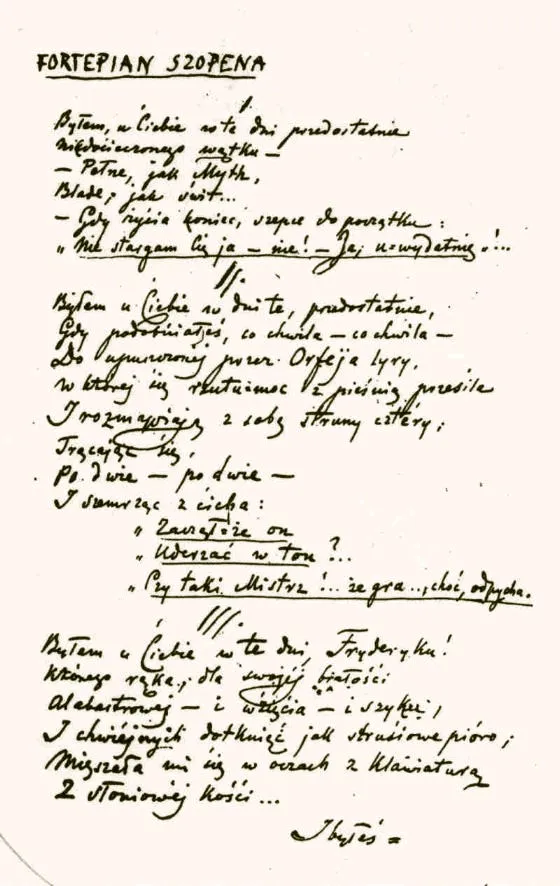 FORTEPIAN SZOPENA
I.
Byłem u Ciebie w te dni przedostatnie
Niedocieczonego wątku —
— Pełne, jak Myth,
Blade, jak świt...
— Gdy życia koniec, szepce do początku:
„Nie stargam Cię ja — nie! — Ja, u=wydatnię!...
II.
Byłem u Ciebie w dni te, przedostatnie,
Gdy podobniałeś, co chwila — co chwila —
Do upuszczonej przez Orfeja lyry,
W której się rzutu=moc z pieśnią przesila
I rozmawiają z sobą struny cztéry;
Trącając się,
Po dwie — po dwie —
I szemrząc z cicha:
„Zacząłże on
„Uderzać w ton?...
„Czy taki Mistrz!... że gra..., choć, odpycha.
III.
Byłem u Ciebie w te dni, Fryderyku!
Którego ręka, dla swojéj białości
Alabastrowéj — i wzięcia — i szyku,
I chwiejnych dotknięć jak strusiowe pióro;
Mięszała mi się w oczach z klawiaturą
Z słoniowéj kości...
I byłeś =